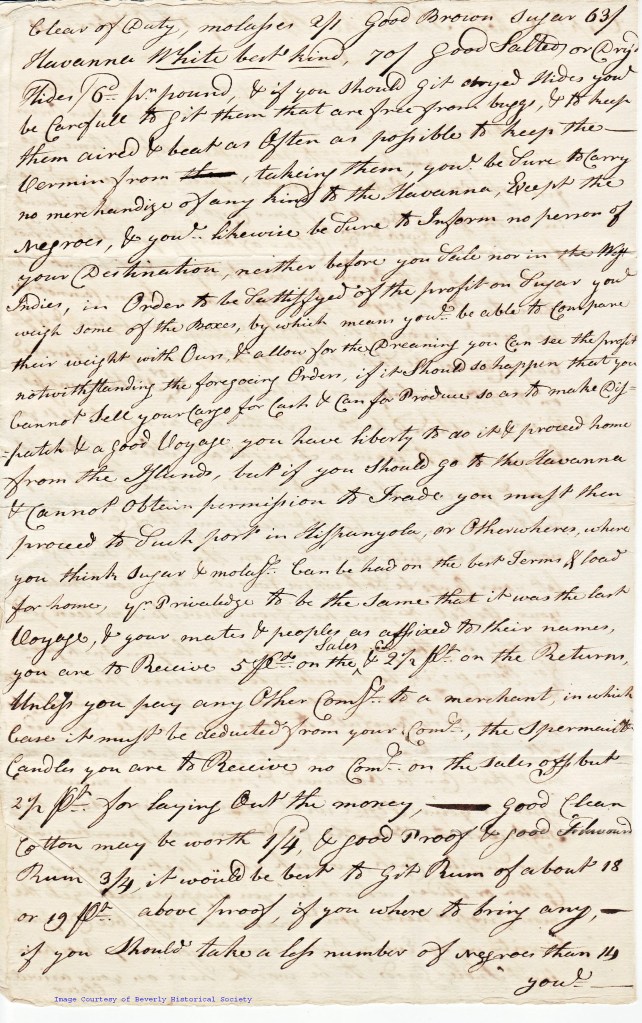 Clear of Duty, molasses 2/1 Good Brown Sugar 63/
Havanna White best kind, 70/ Good Salted, or Dry'd
Hides 6d pr pound, & if you should Git dryed Hides youl
be Carefull to Git them that are free from buggs, & to keep
them aired & beat as Often as possible to keep the —
Vermin from , takeing them, youl be Sure to Carry
no merchandize of any kind to the Havanna, Except the
Negroes, & youl likewise be Sure to Inform no person of
your Destination, neither before you Sale nor in the West
Indies, in Order to be Sattisfyed of the profit on Sugar youl
weigh some of the Boxes, by which means youl be able to Compare
their weight with Ours, & allow for the Dreaning you Can see the profit
notwithstanding the foregoing Orders, if it Should so happen that you
Cannot Sell your Cargo for Cash & Can for Produce so as to make Dis=
=patch & a good Voyage you have liberty to do it & proceed home
from the Islands, but if you should go to the Havanna
& Cannot Obtain permission to Trade you must then
proceed to Such port in Hispanyola, or Otherwheres, where
you think Sugar & molass. Can be had on the best Terms, & load
for home, yr Privaledge to be the Same that it was the last
Voyage, & your mates & peoples as affixed to their names,
you are to Receive 5 pCt on the Sales & 2 1/2 pCt. on the Returns,
Unless you pay any Other Comss. to a merchant, in which
Case it must be deducted from your Coms., the Spermaciti
Candles you are to Receive no Coms. on the Sales off but
2 1/2 pCt. for laying Out the money, — Good Clean
Cotton may be worth 1/4, & good Proof & good
Rum 3/4, it would be best to Git Rum of about 18
or 19 pCt. above proof, if you where to bring any, —
if you Should take a less number of Negroes than 14
youl —
Image Courtesy of Beverly Historical Society